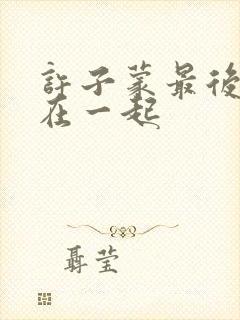 許子蒙最後
在一起
聶莹